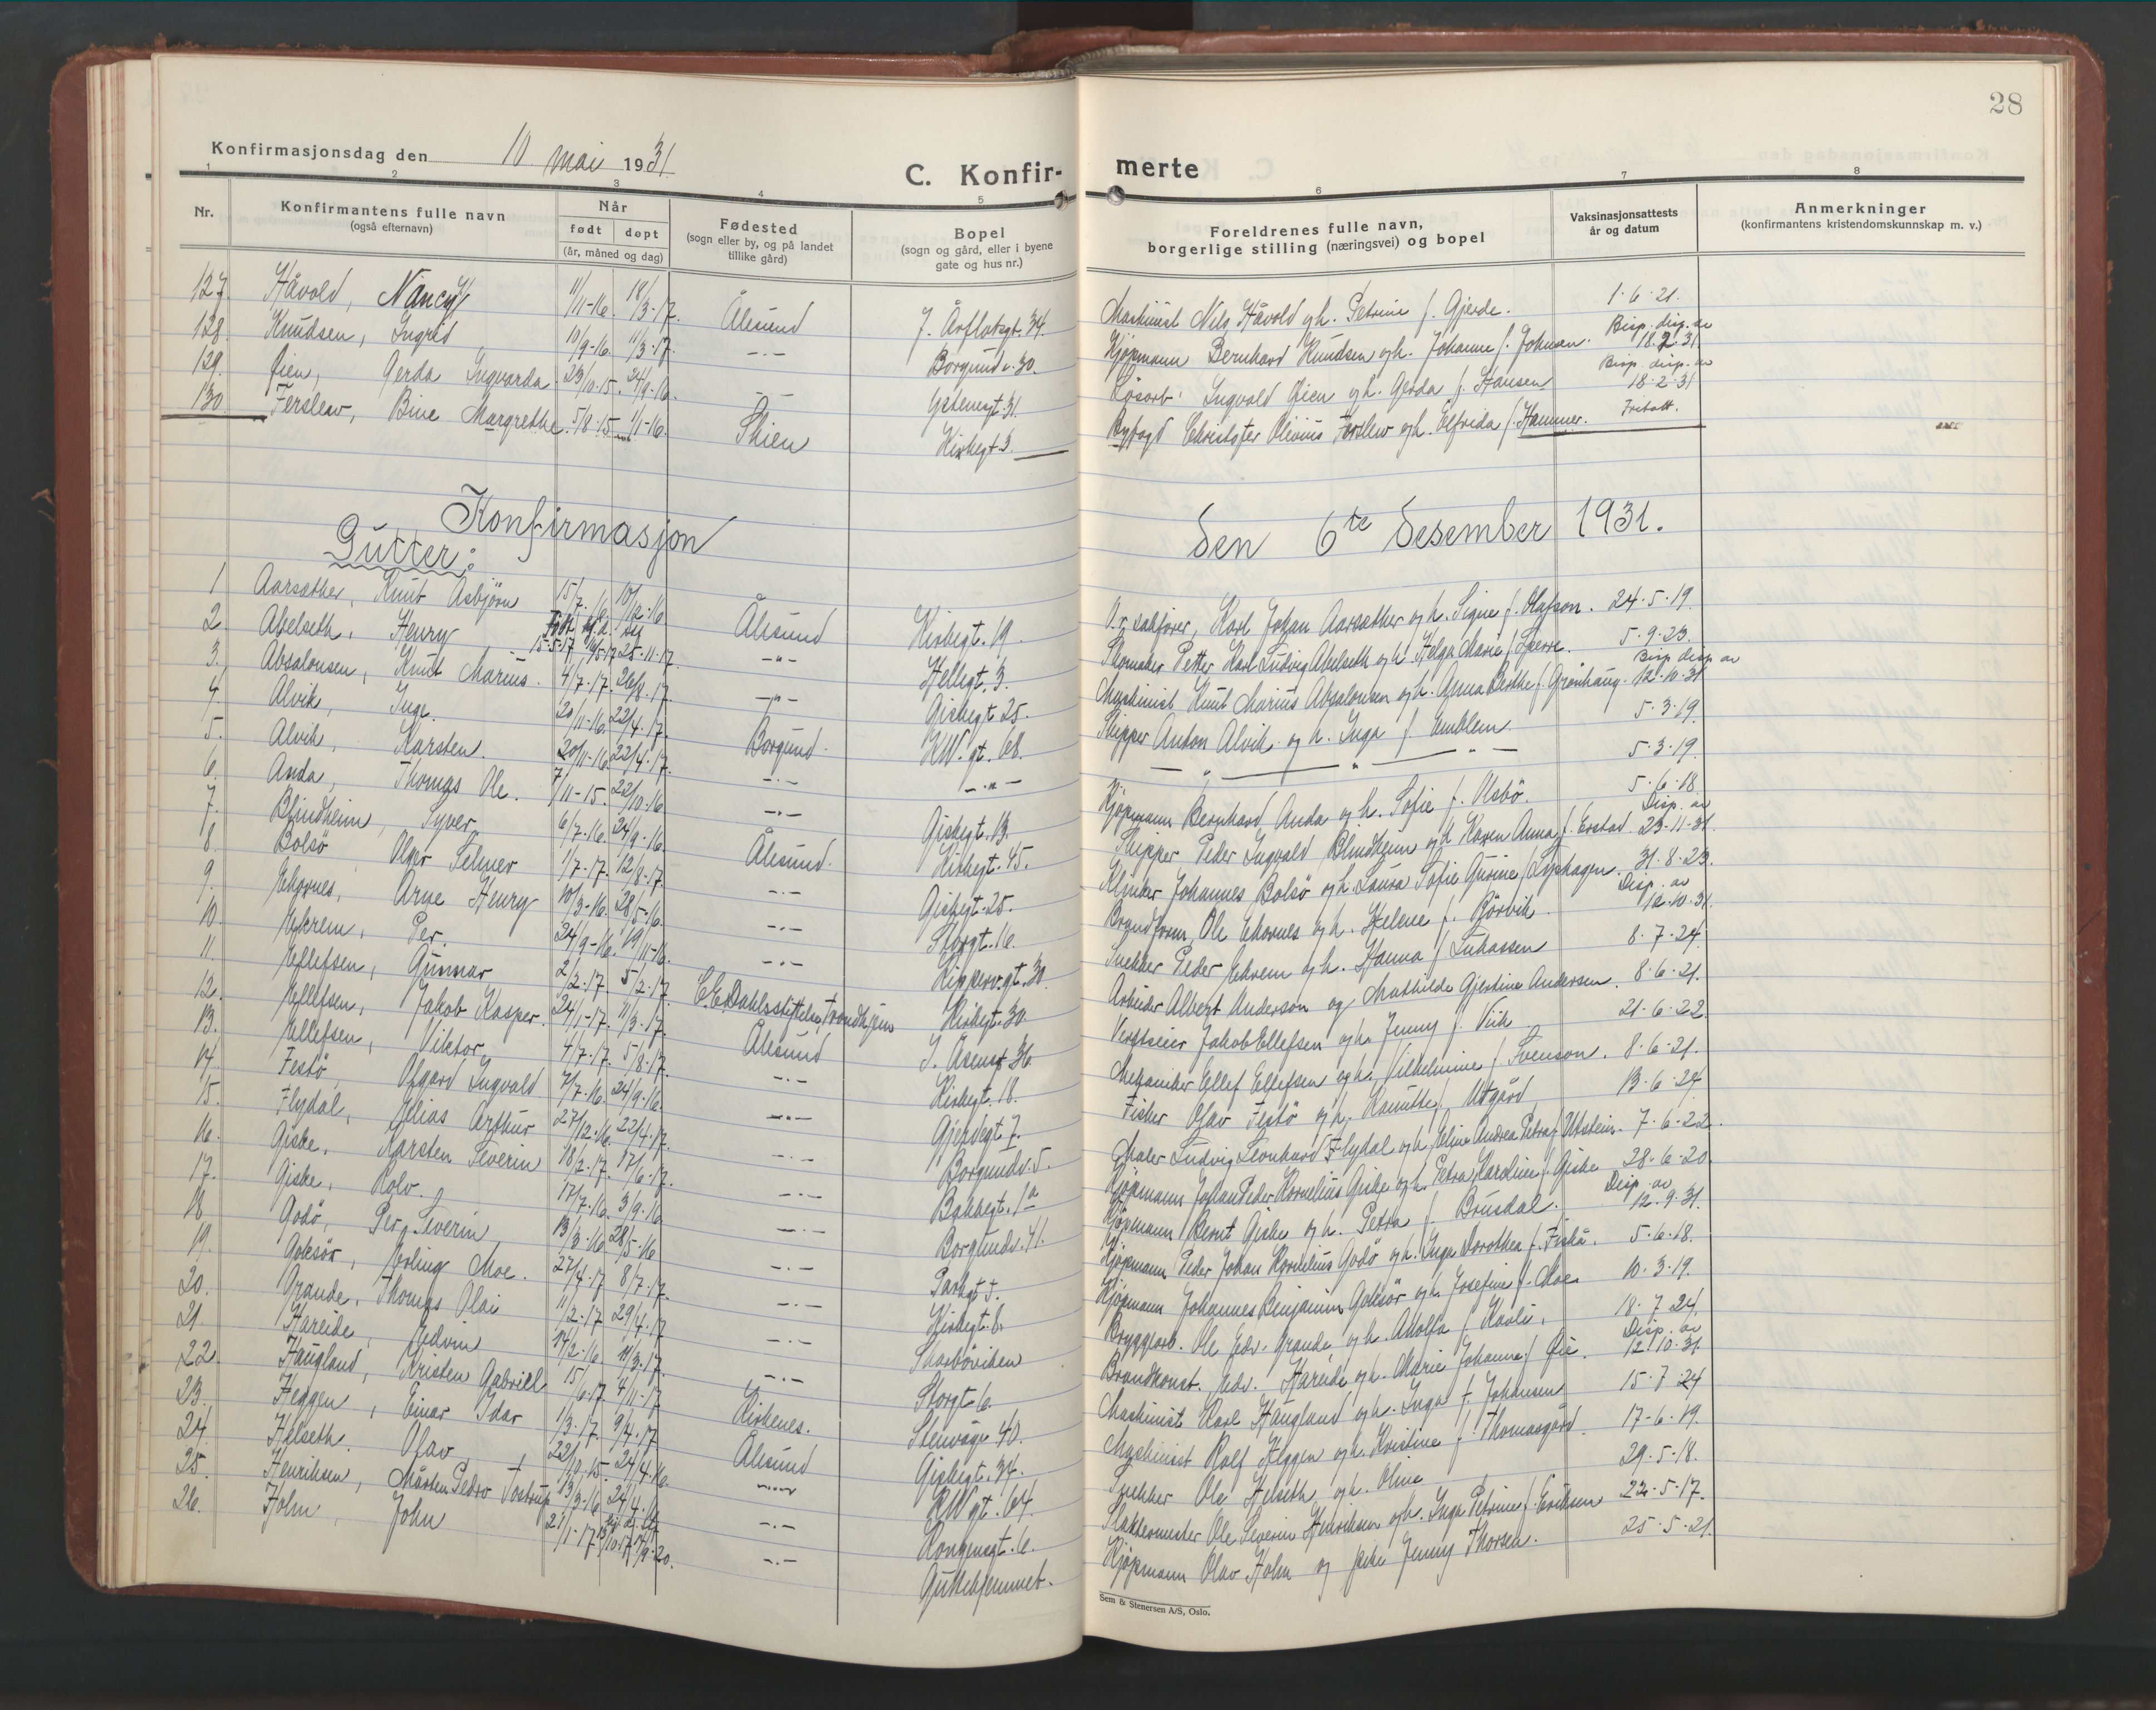 28
Konfirmasjonsdag den 10 mai 1931
C. Konfir- merte
1 2 3 4 5 6 7 8
Nr.
Konfirmantens fulle navn
(også efternavn)
Når
født døpt
(år, måned og dag)
Fødested
(sogn eller by, og på landet
tillike gård)
Bopel
(sogn og gård, eller i byene
gate og hus nr.)
Foreldrenes fulle navn,
borgerlige stilling (næringsvei) og bopel
Vaksinasjonsattests
år og datum
Anmerkninger
(konfirmantens kristendomskunnskap m. v.)
127. Håvold, Nancy 11/11-16. 18/3-17. Ålesund J. Aarflotsgt. 34. Maskinist Nils Håvold og h. Petrine f. Gjerde. 1·6·21.
128. Knudsen, Ingrid 10/9-16. 11/3-17. -.- Borgundv. 30. Kjøpmann Bernhard Knudsen og h. Johanne f. Johnsen. Bisp. disp. av 18.2.31
129. Øien, Gerda Ingvarda 23/10-15. 24/9-16. -.- Ystenesgt. 31. Løsarb. Ingvald Øien og h. Gerda f. Hansen Bisp. disp. av 18·2·31
130. Ferslew, Bine Margrethe. 5/8-15 1/1-16. Skien Kirkegt 3. Byfogd Christofer Olivius Ferslew og h. Elfrida f. Hammer. Fritatt.
Konfirmasjon den 6te desember 1931.
Gutter:
1 Aarsæther, Knut Asbjørn 15/7-16 10/12-16 Ålesund Kirkegt. 19. O.r.sakfører, Karl Johan Aarsæther og h. Signe f. Olafson. 24·5·19.
2. Abelseth, Henry 15-5-17 25-11-17. -"- Hellegt. 3. Skomaker Petter Karl Ludvig Abelseth og h. Helga Marie f. Sperre. 5·9·23.
3. Absalonsen, Knut Marius. 4/7-17. 26/8-17. -"- Giskegt. 25. Maskinist Knut Marius Absalonsen og h. Anna Berthe f. Grønhaug. Bisp. disp. av 12·10·31
4. Alvik, Inge. 20/11-16. 22/4-17. Borgund. K.W. gt. 68. Skipper Anton Alvik og h. Inga f. Emblem. 5·3·19.
5. Alvik, Karsten. 20/11-16. 22/4-17. -.- -"- -"- 5·3·19.
6. Anda, Thomas Ole. 7/11-15. 22/10-16 -.- Giskegt. 13. Kjøpmann Bernhard Anda og h. Sofie f. Osbø. 5·6·18.
7. Blindheim, Syver 6/7-16. 24/9-16 Ålesund. Kirkegt. 45. Skipper Peder Ingvald Blindheim og h. Karen Anna f. Erstad. Disp. av 23·11·31.
8. Bolsø Olger Selmer 1/7-17. 12/8-17. -.- Giskegt. 25. Klinker Johannes Bolsø og h. Laura Sofie Gurine f. Lyshagen. 31·8·23.
9. Ekornes, Arne Henry 10/3-16. 28/5-16. -.- Storgt. 16. Brandform. Ole Ekornes og h. Helene f. Bjørvik. Disp. av 12·10·31.
10. Ekrem, Per. 24/9-16. 19/11-16. -.- Kipperv.gt. 30. Snekker Peder Ekrem og h. Hanna f. Lukassen 8·7·24.
11. Ellefsen, Gunnar 2/2-17. 5/2-17. E.C. Dahlsstiftelse, Trondhjem Kirkegt. 30. Arbeider Albert Anderson og Mathilde Gjertine Andersen. 8·6·21.
12. Ellefsen, Jakob Kasper. 24/1-17. 11/3-17. Ålesund I. Aasensgt 36 Verftseier Jakob Ellefsen og h. Jenny f. Vik 21·6·22.
13. Ellefsen, Viktor 4/7-17. 5/8-17. -.- Kirkegt. 18. Mekaniker Ellef Ellefsen og h. Vilhelmine f. Svenson. 8·6·21.
14. Festø, Olgard Ingvald 7/7-16. 24/9-16. -.- Gjerdegt. 7. Fisker Olav Festø og h. Kanutte f. Utgård 13·6·24
15. Flydal, Elias Arthur 27/12-16. 22/4-17. -.- Borgundv. 5. Maler Ludvig Leonhard Flydal og h. Eline Andrea Petra f. Utstein. 7·6·22.
16. Giske, Karsten Severin 18/2-17. 17/6-17. -.- Bakkegt. 1a Kjøpmann Johan Peder Kornelius Giske og h. Petra Karoline f. Giske 28·6·20.
17. Giske, Rolv. 17/7-16. 3/9-16 -.- Borgundv. 41. Kjøpmann Bernt Giske og h. Petra f. Brusdal. Disp. av 12.9.31.
18 Godø, Per Severin 13/3-16. 28/5-16 -.- Parkgt 5. Kjøpmann Peder Johan Kornelius Godø og h. Inga Dorothea f. Fiskå. 5·6·18.
19. Goksør, Erling Moe. 27/4-17 8/7-17. -.- Kirkegt. 6. Kjøpmann Johannes Benjamin Goksør og h. Josefine f. Moe 10·3·19.
20. Grande, Thomas Olai 11/2-17 29/4-17 -.- Skarbøviken Bryggearb. Ole Edv. Grande og h. Adolfa f. Kavli. 18·7·24.
21. Hareide, Edvin 14/12-16. 11/3-17. -.- Storgt 6. Brandkonst. Edv. Hareide og h. Marie Johanna f. Øie. Disp. av 12·10·31
22. Haugland, Kristen Gabriel 15/6-17. 4/11-17 Kirkenes. Stenvågv 40. Maskinist Karl Haugland og h. Inga f. Johansen 15·7·24
23. Heggen, Einar Idar 1/3-17. 9/4-17 Ålesund Giskegt. 34. Maskinist Rolf Heggen og h. Kristine f. Thomasgård. 17-6·19.
24. Helseth. Olav 22/10-15. 24/4-16. -.- K.W gt. 64. Snekker Ole Helseth og h. Oline 29·5·18.
25. Henriksen, Mårten Pedro Tostrup 13/3-16 24/4-16 -.- Kongensgt. 6. Slaktermester Ole Severin Henriksen og h. Inga Petrine f. Eriksen 22·5·17.
26. Holm, John 21/1-17 19/9-20. -.- Guttehjemmet. Kjøpmann Olav Holm og frk. Jenny Thorsen. 25·5·21.
Sem & Stenersen A/S, Oslo.